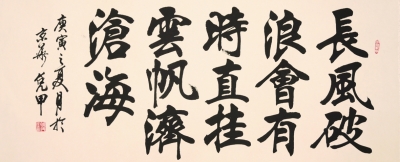 長風破
浪會有
時直挂
雲帆濟
滄海
庚寅之夏月於
京華堯甲